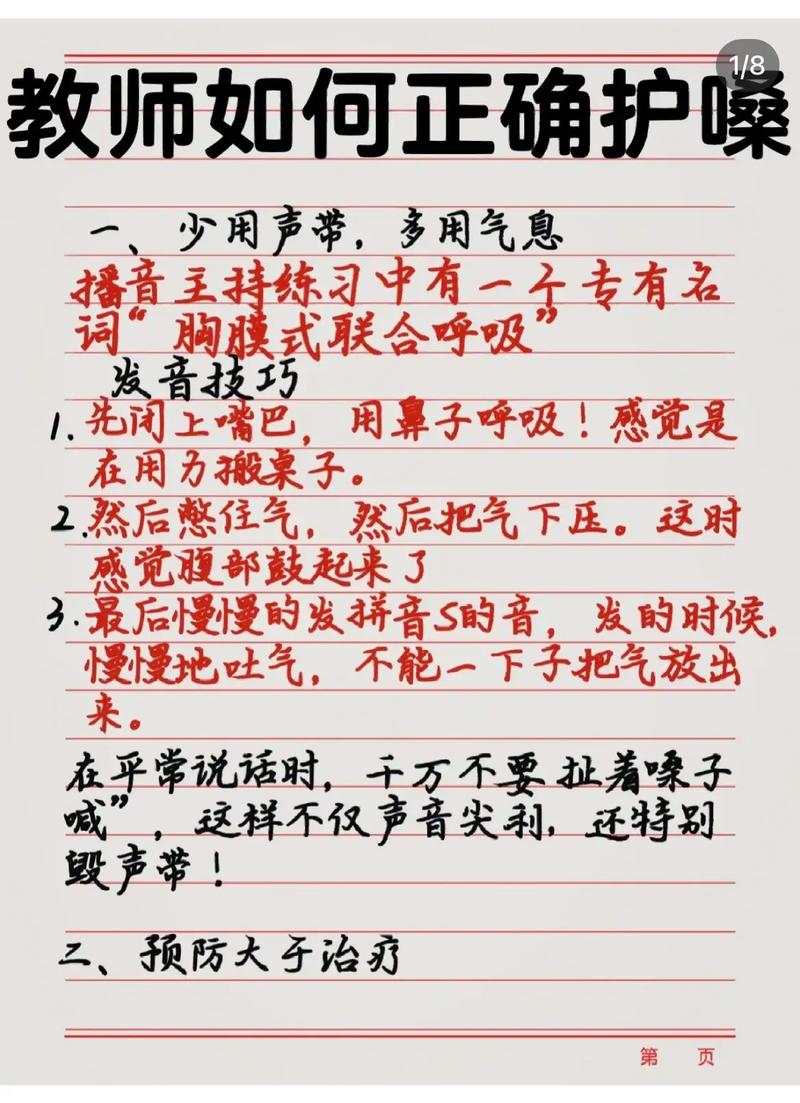 1/8
教师如何正确护嗓
一、少用声带，多用气息
播音主持练习中有一个专有名
词“胸膜式联合呼吸”
发音技巧
1.先闭上嘴巴，用鼻子呼吸！感觉是
在用力搬桌子。
2.然后憋住气，然后把气下压。这时
感觉腹部鼓起来了
3.最后慢慢的发拼音S的音，发的时候，
慢慢地吐气，不能一下子把气放出
来。
在平常说话时，千万不要扯着嗓子
喊”，这样不仅声音尖利，还特别
毁声带！
二、预防大于治疗
第 页